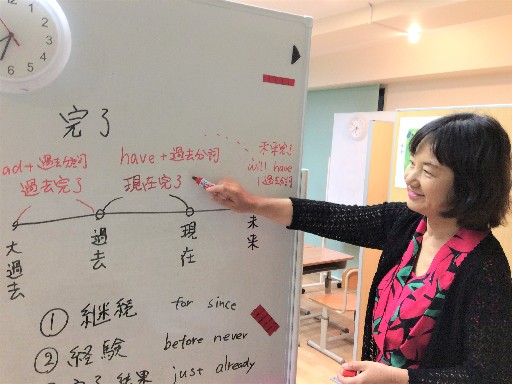 完了
ad+過去分詞
過去完了
have+過去分詞
現在完了
未来完了
will have
過去分詞
大過去
過去
現在
未来
① 継続 for since
② 経験 before never
完了 結果 just already